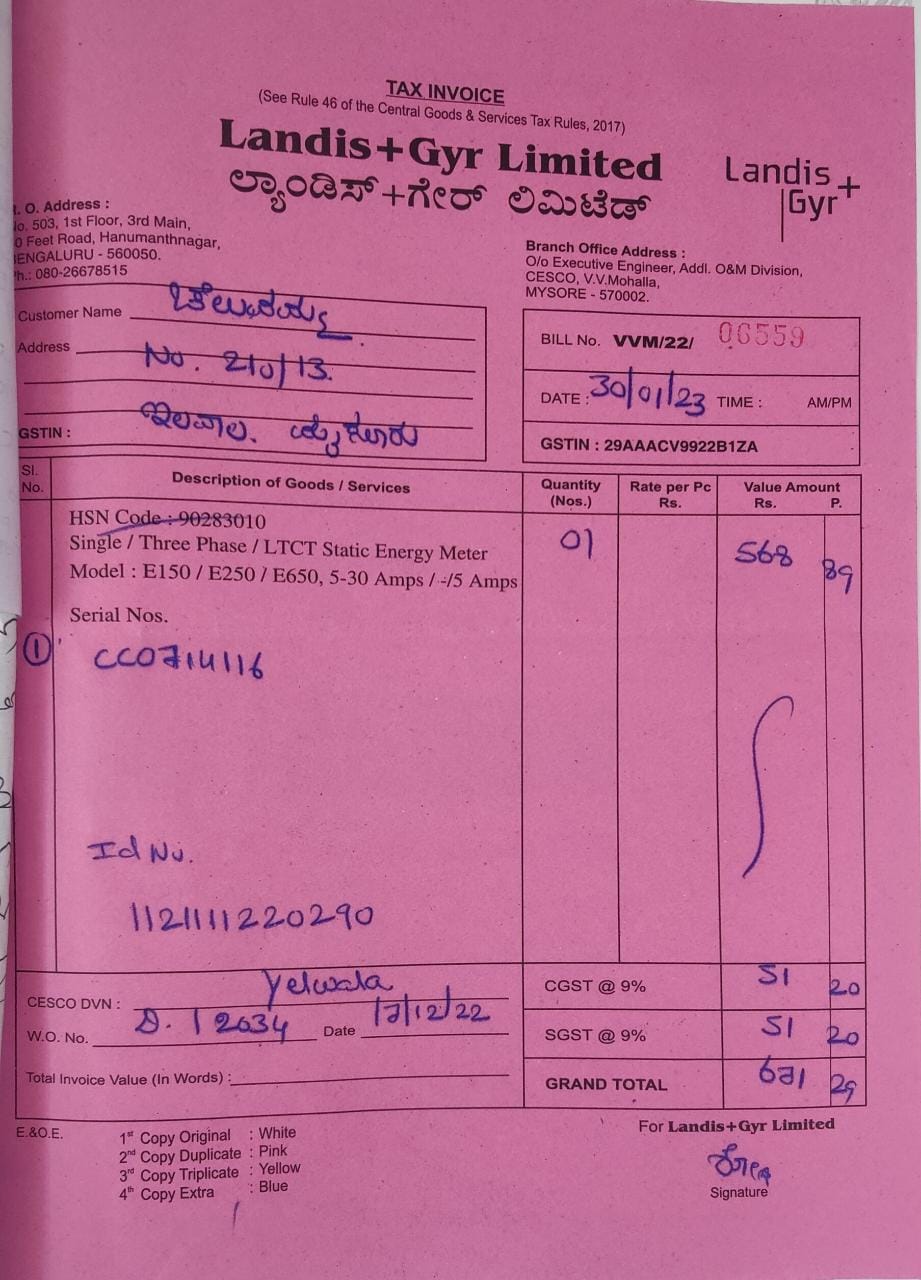 TAX INVOICE
(See Rule 46 of the Central Goods & Services Tax Rules, 2017)
Landis+Gyr Limited
ಲ್ಯಾಂಡಿಸ್+ಗೇರ್ ಲಿಮಿಟೆಡ್
Landis
Gyr+
. O. Address :
o. 503, 1st Floor, 3rd Main,
0 Feet Road, Hanumanthnagar,
ENGALURU - 560050.
h.: 080-26678515
Branch Office Address :
O/o Executive Engineer, Addl. O&M Division,
CESCO, V.V.Mohalla,
MYSORE - 570002.
Customer Name
Address No. 210/13.
GSTIN : ಇಲವಾಲ. ಮೈಸೂರು
BILL No. VVM/22/ 06559
DATE : 30/01/23 TIME : AM/PM
GSTIN : 29AAACV9922B1ZA
Sl. No. Description of Goods / Services Quantity (Nos.) Rate per Pc Rs. Value Amount Rs. P.
HSN Code : 90283010
Single / Three Phase / LTCT Static Energy Meter 01 568 89
Model : E150 / E250 / E650, 5-30 Amps / -/5 Amps
Serial Nos.
1 CC0714116
Id No.
1121111220290
CESCO DVN : Yelwala
W.O. No. D. 12034 Date 17/12/22
Total Invoice Value (In Words) :
CGST @ 9% 51 20
SGST @ 9% 51 20
GRAND TOTAL 671 29
E.&O.E.
1st Copy Original : White
2nd Copy Duplicate : Pink
3rd Copy Triplicate : Yellow
4th Copy Extra : Blue
For Landis+Gyr Limited
Signature